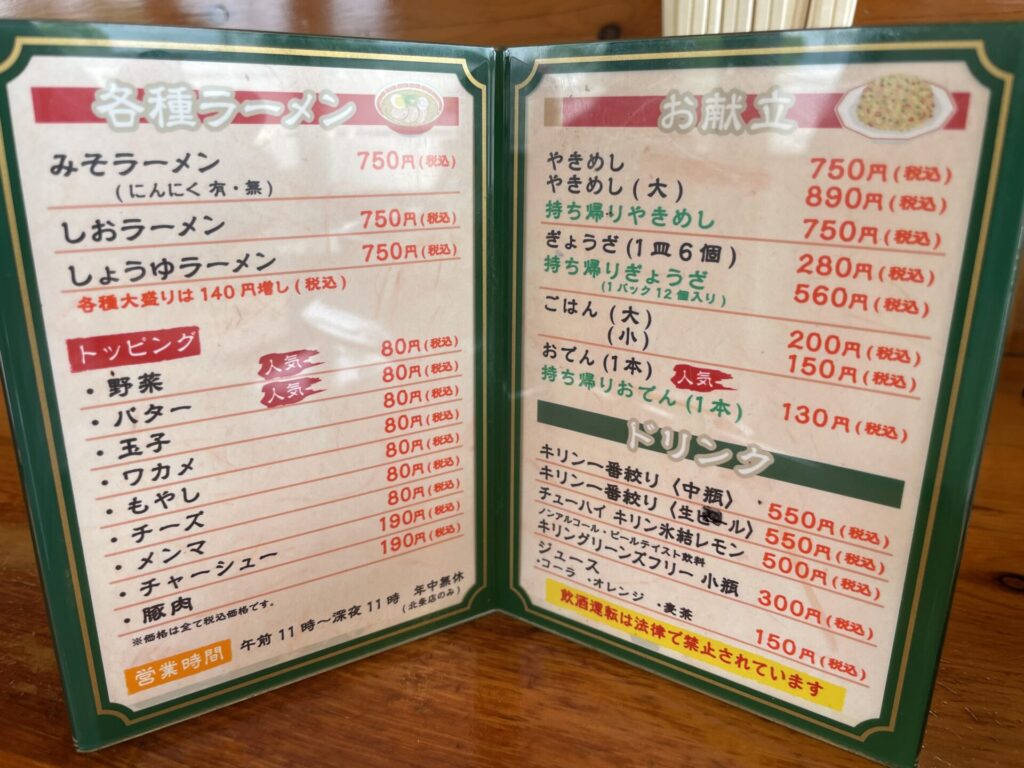 各種ラーメン
みそラーメン 750円(税込)
(にんにく 有・無)
しおラーメン 750円(税込)
しょうゆラーメン 750円(税込)
各種大盛りは140円増し(税込)
トッピング
・野菜 人気 80円(税込)
・バター 人気 80円(税込)
・玉子 80円(税込)
・ワカメ 80円(税込)
・もやし 80円(税込)
・チーズ 80円(税込)
・メンマ 80円(税込)
・チャーシュー 190円(税込)
・豚肉 190円(税込)
※価格は全て税込価格です。
営業時間 午前11時〜深夜11時 年中無休
(北条店のみ)
お献立
やきめし 750円(税込)
やきめし(大) 890円(税込)
持ち帰りやきめし 750円(税込)
ぎょうざ(1皿6個) 280円(税込)
持ち帰りぎょうざ 560円(税込)
(1パック12個入り)
ごはん (大) 200円(税込)
(小) 150円(税込)
おでん(1本) 人気
持ち帰りおでん(1本) 130円(税込)
ドリンク
キリン一番絞り〈中瓶〉 550円(税込)
キリン一番絞り〈生ビール〉 550円(税込)
チューハイ キリン氷結レモン 500円(税込)
ノンアルコール・ビールテイスト飲料
キリングリーンズフリー 小瓶 300円(税込)
ジュース 150円(税込)
・コーラ ・オレンジ ・麦茶
飲酒運転は法律で禁止されています